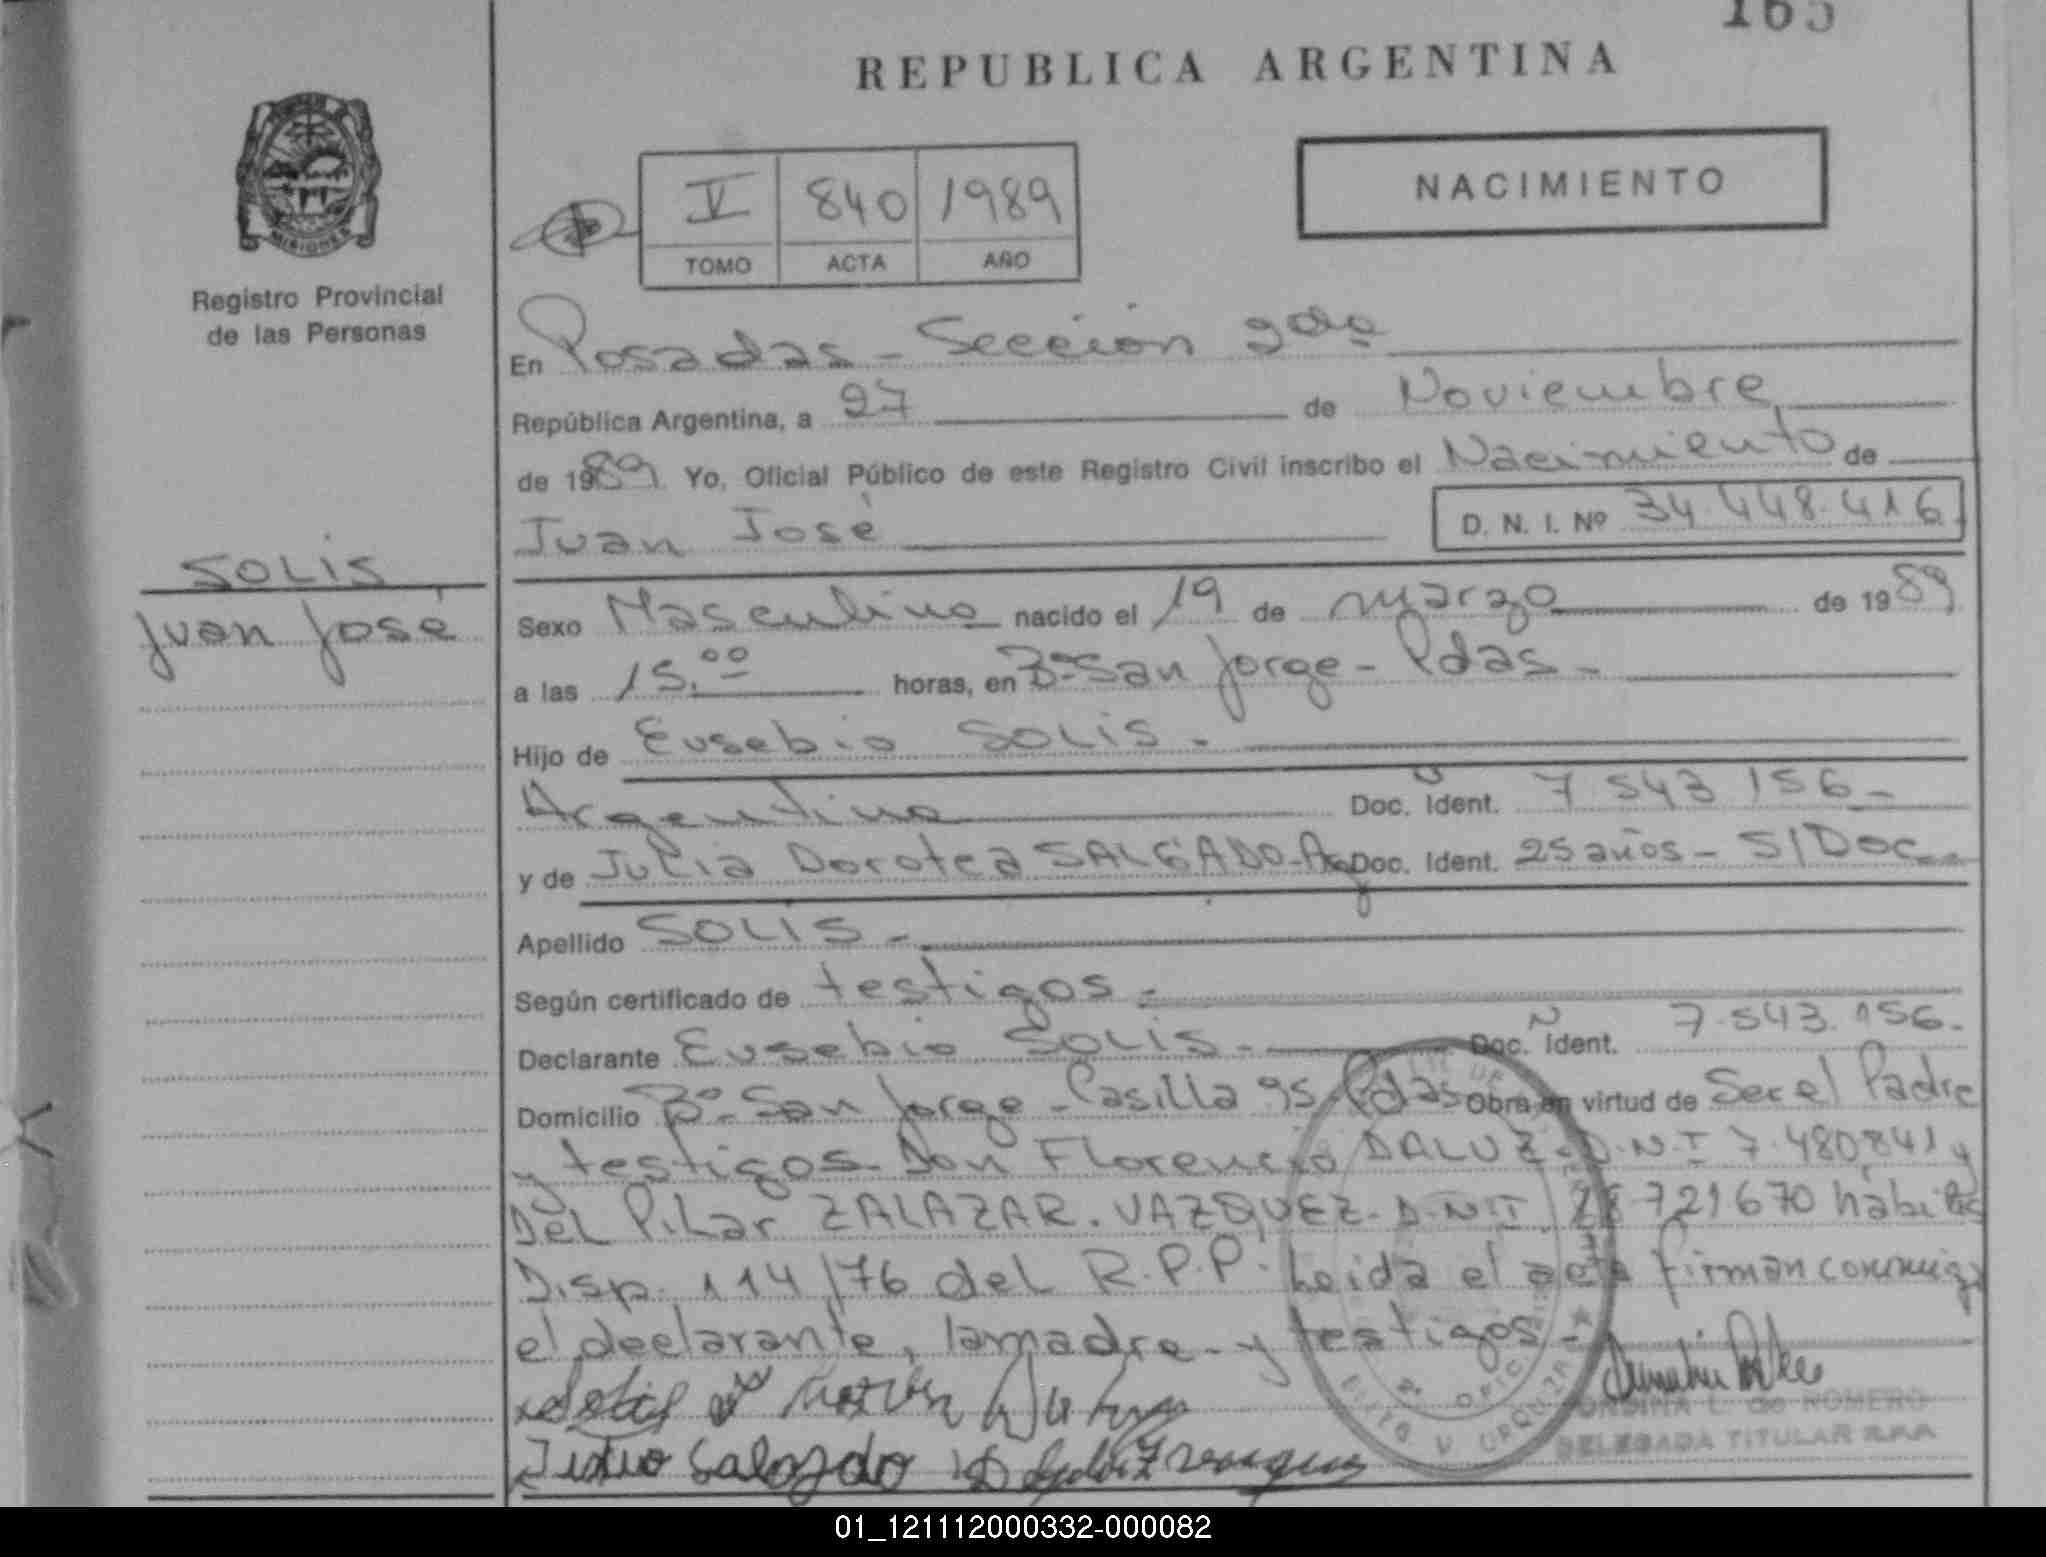 165
REPUBLICA ARGENTINA
NACIMIENTO
V 840 1989
TOMO ACTA AÑO
MISIONES
Registro Provincial
de las Personas
En Posadas - Sección 2da
República Argentina, a 27 de Noviembre
de 1989. Yo, Oficial Público de este Registro Civil inscribo el Nacimiento de
Juan José D. N. I. Nº 34.448.416
SOLIS
Juan José
Sexo Masculino nacido el 19 de marzo de 1989
a las 15.00 horas, en Bº San Jorge - Pdas -
Hijo de Eusebio SOLIS -
Argentino Doc. Ident. 7 543 156 -
y de Julia Dorotea SALGADO - Arg Doc. Ident. 25 años - S/Doc -
Apellido SOLIS -
Según certificado de testigos -
Declarante Eusebio SOLIS - Doc. Ident. 7.543.156.
Domicilio Bº San Jorge - Casilla 95 - Pdas Obra en virtud de Ser el Padre
y testigos - Don Florencio DALUZ - D.N.I 7.480841 y
Del Pilar ZALAZAR. VAZQUEZ - D.N.I. 721670 hábiles
Disp. 114/76 del R.P.P. Leida el acta firman conmigo
el declarante, la madre - y testigos -
Solis
ONDINA L. de ROMERO
DELEGADA TITULAR R.P.P.
URQUIZA
01_121112000332-000082